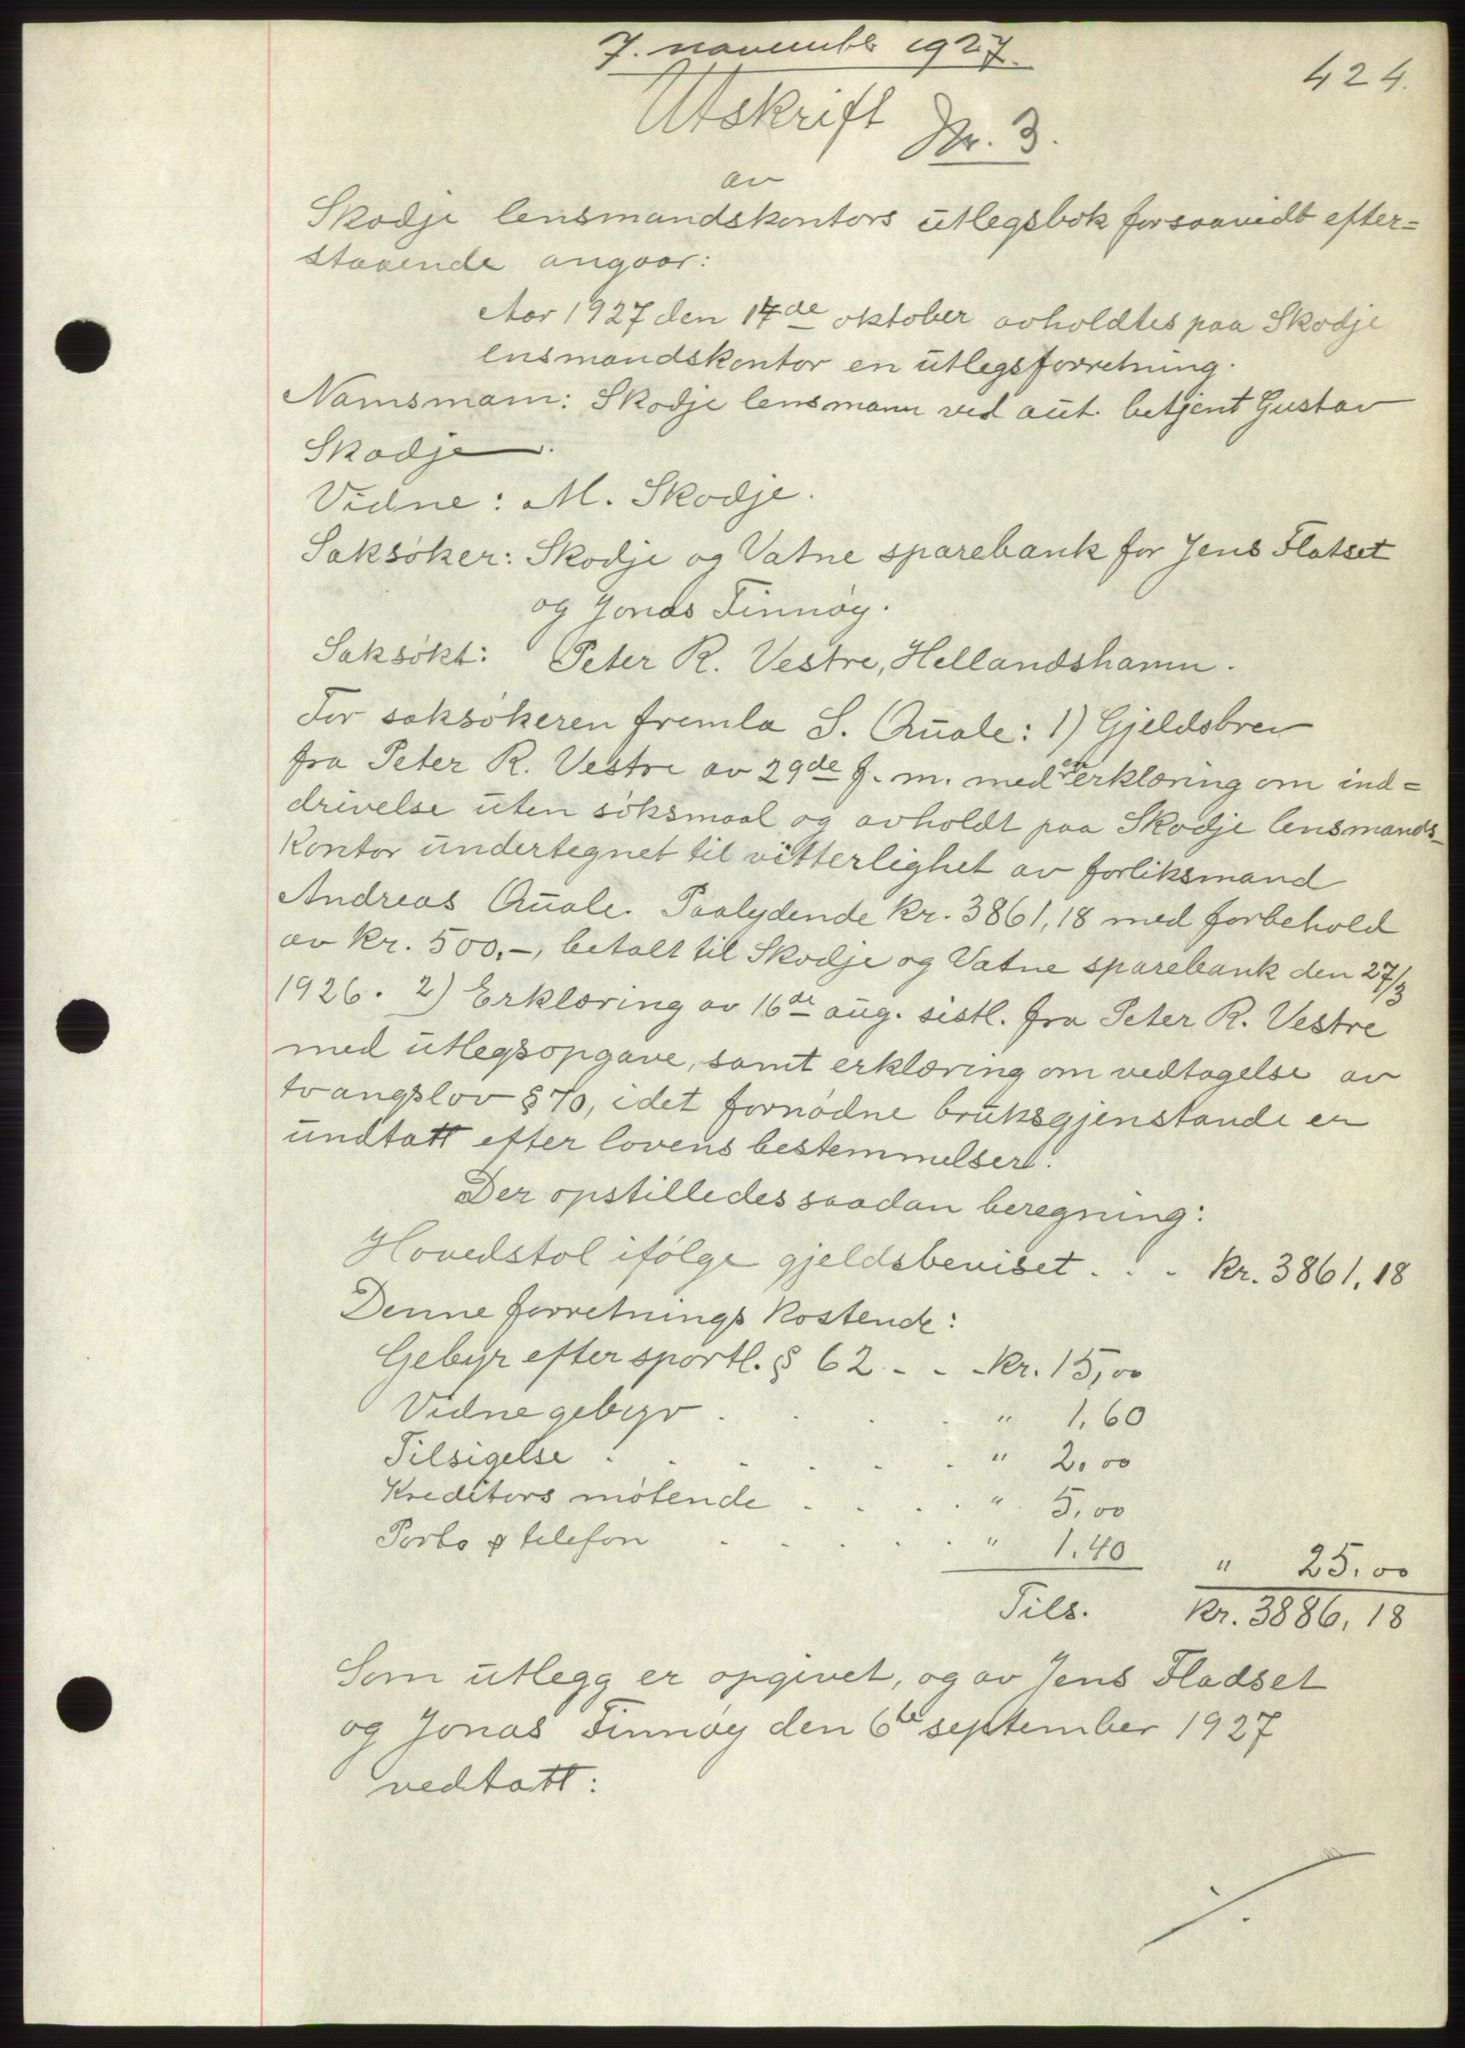 7. november 1927.
424.
Utskrift
Nr. 3.
av
Skodje lensmandskontors utlegsbok forsaavidt efter=
staaende angaar:
Aar 1927 den 17de oktober avholdtes paa Skodje
lensmandskontor en utlegsforretning.
Namsmam: Skodje lensmann ved aut. betjent Gustav
Skodje.
Vidne: M. Skodje.
Saksøker: Skodje og Vatne sparebank for Jens Flatset
og Jonas Finnøy.
Saksøkt: Peter R. Vestre, Hellandshamn.
For saksøkeren fremla S. Quale: 1) Gjeldsbrev
fra Peter R. Vestre av 29de f. m. med en erklæring om ind=
drivelse uten søksmaal og avholdt paa Skodje lensmands-
kontor undertegnet til vitterlighet av forliksmand
Andreas Quale. Paalydende kr. 3861,18 med forbehold
av kr. 500.-, betalt til Skodje og Vatne sparebank den 27/3
1926. 2) Erklæring av 16de aug. sistl. fra Peter R. Vestre
med utlegsopgave, samt erklæring om vedtagelse av
tvangslov § 70, idet fornødne bruksgjenstande er
undtatt efter lovens bestemmelser.
Der opstilledes saadan beregning:
Hovedstol ifølge gjeldsbeviset . . . kr. 3861,18
Denne forretnings kostende:
Gebyr efter sportl. § 62 - - - kr. 15,00
Vidnegebyr . . . . " 1,60
Tilsigelse . . . . . . " 2,00
Kreditors møtende . . . . " 5,00
Porto & telefon . . . . . " 1.40 " 25,00
Tils. kr. 3886,18
Som utlegg er opgivet, og av Jens Fladset
og Jonas Finnøy den 6te september 1927
vedtatt:
./.